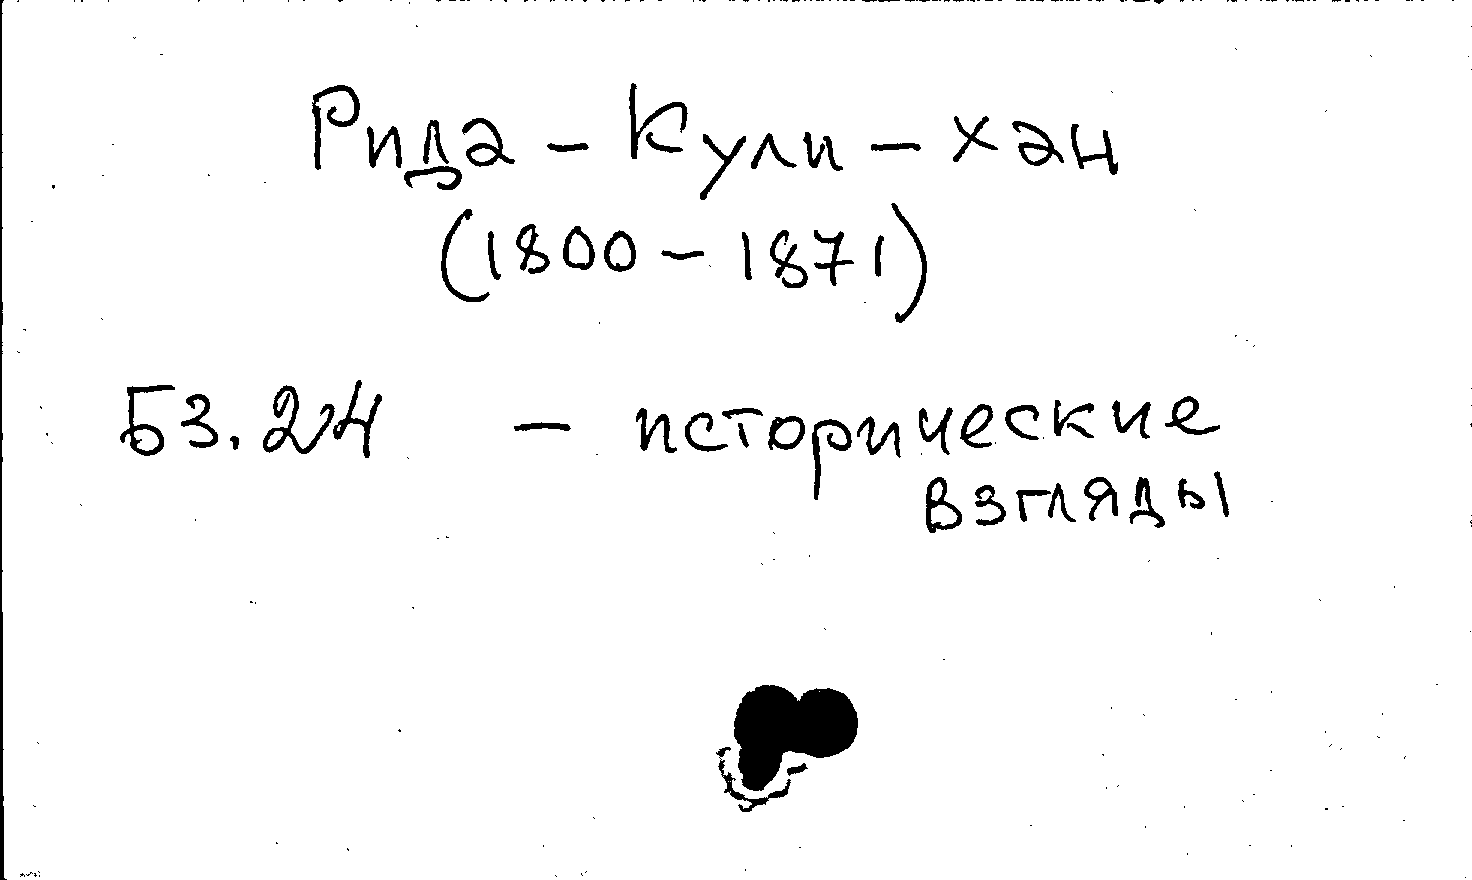 Рида - Кули - хан
(1800 - 1871)
Б3.24 - исторические
взгляды